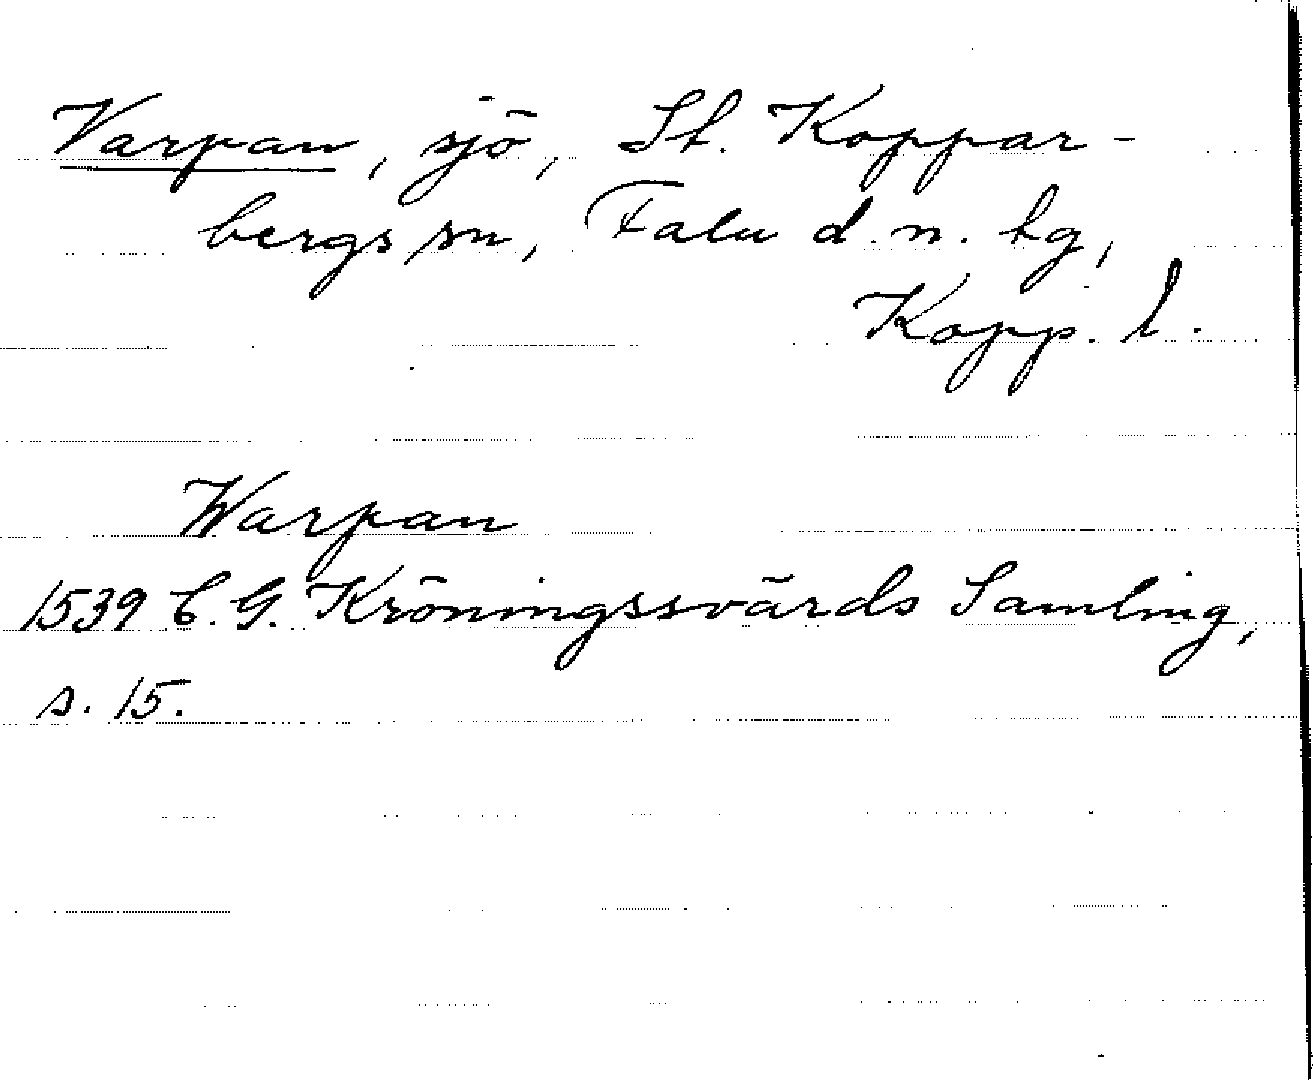 Varpan, sjö, St. Koppar-
bergs sn, Falu d. n. tg,
Kopp. l.
Warpan
1539 C. G. Kröningssvärds Samling,
s. 15.